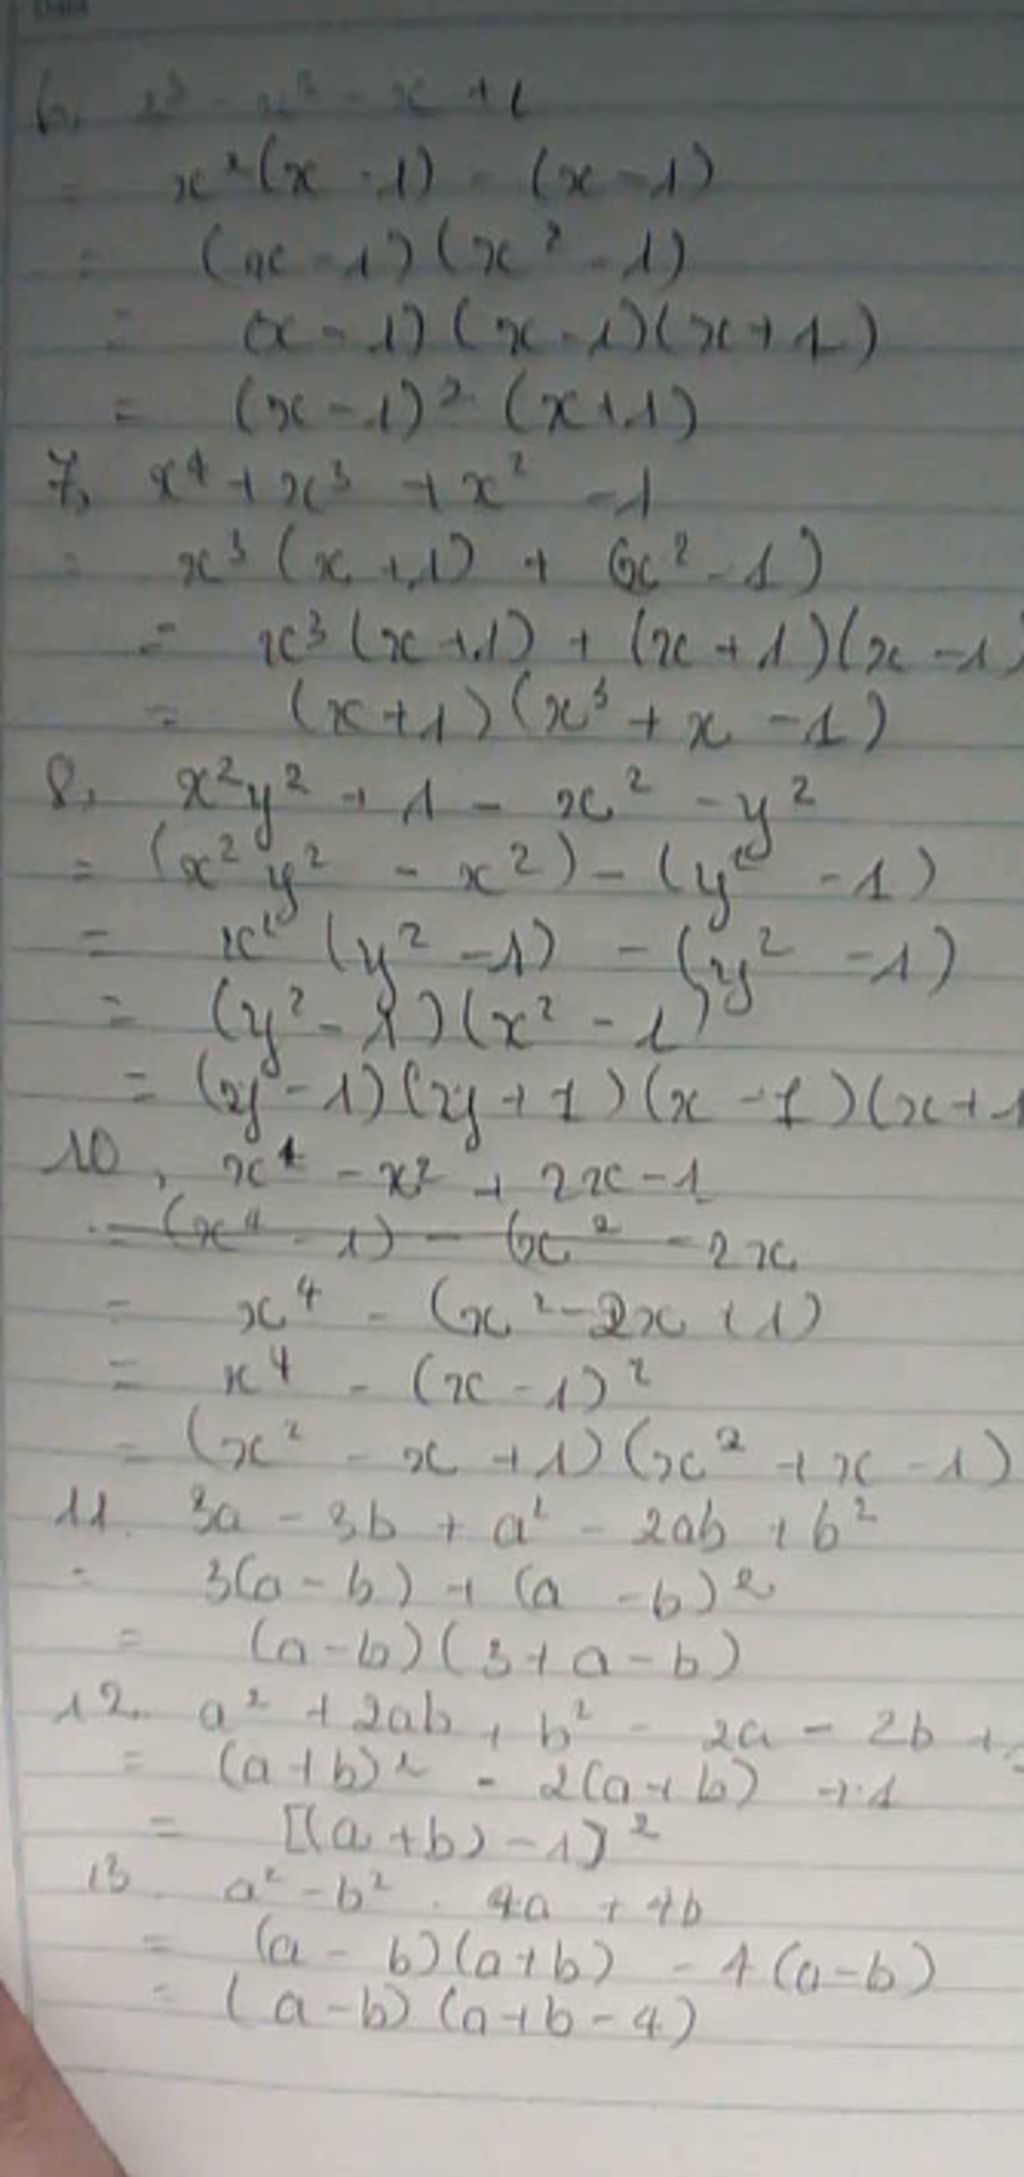 6, x³ - x² - x + 1
= x²(x - 1) - (x - 1)
= (x - 1)(x² - 1)
= (x - 1)(x - 1)(x + 1)
= (x - 1)² (x + 1)
7, x⁴ + x³ + x² - 1
= x³ (x + 1) + (x² - 1)
= x³ (x + 1) + (x + 1)(x - 1)
= (x + 1)(x³ + x - 1)
8, x²y² + 1 - x² - y²
= (x²y² - x²) - (y² - 1)
= x² (y² - 1) - (y² - 1)
= (y² - 1)(x² - 1)
= (y - 1)(y + 1)(x - 1)(x + 1
10, x⁴ - x² + 2x - 1
= (x⁴ - 1) - (x² - 2x
= x⁴ - (x² - 2x + 1)
= x⁴ - (x - 1)²
= (x² - x + 1)(x² + x - 1)
11. 3a - 3b + a² - 2ab + b²
= 3(a - b) + (a - b)²
= (a - b)(3 + a - b)
12. a² + 2ab + b² - 2a - 2b +
= (a + b)² - 2(a + b) + 1
= [(a + b) - 1]²
13. a² - b² - 4a + 4b
= (a - b)(a + b) - 4(a - b)
= (a - b)(a + b - 4)